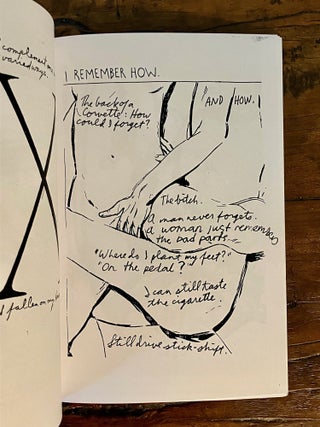 complement
varied ways.
I REMEMBER HOW.
The back of a
Corvette: How
could I forget?
"AND HOW.
The bitch.
A man never forgets.
a woman just remembers
the bad parts...
"Where do I plant my feet?"
"On the pedal?
I can still taste
the cigarette.
Still drive stick-shift.
X
fallen on my